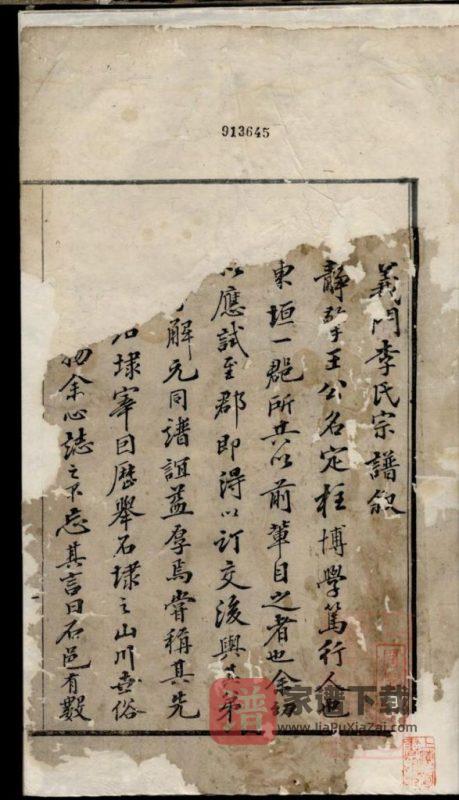 913645
義門李氏宗譜敘
靜挐王公名定柱博學篤行人也
東垣一郡所共以前輩目之者也余幼
以應試至郡即得以訂交後與其弟
解元同譜誼益厚焉嘗稱其先
石埭宰曰歷舉石埭之山川世俗
物余心誌之不忘其言曰石邑有數
譜
家谱下载
www.jiaPuXiaZai.com